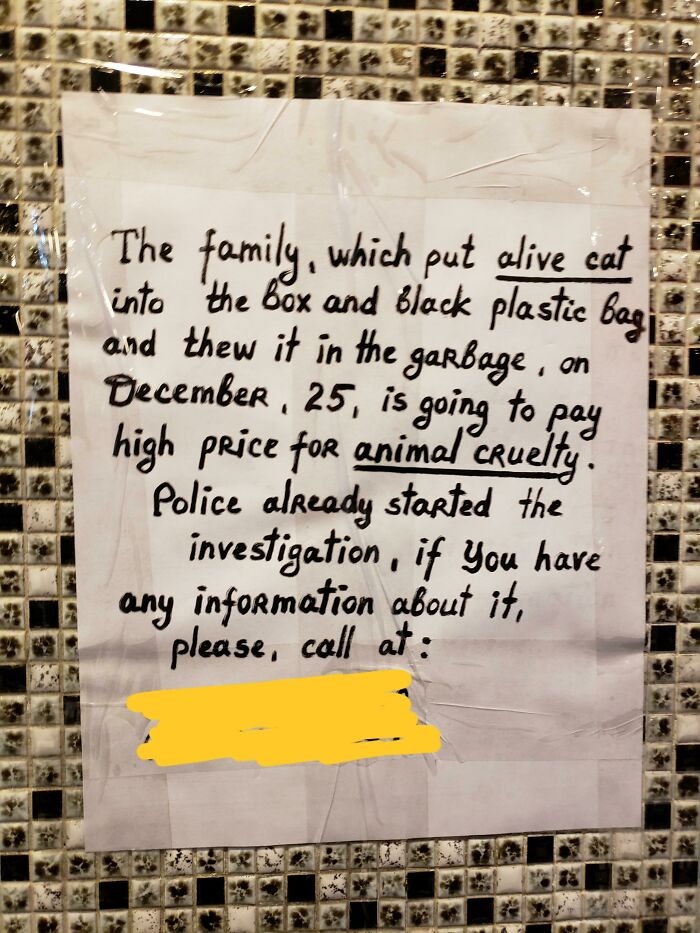 The family, which put alive cat
into the box and black plastic bag
and thew it in the garbage, on
December, 25, is going to pay
high price for animal cruelty.
Police already started the
investigation, if you have
any information about it,
please, call at: